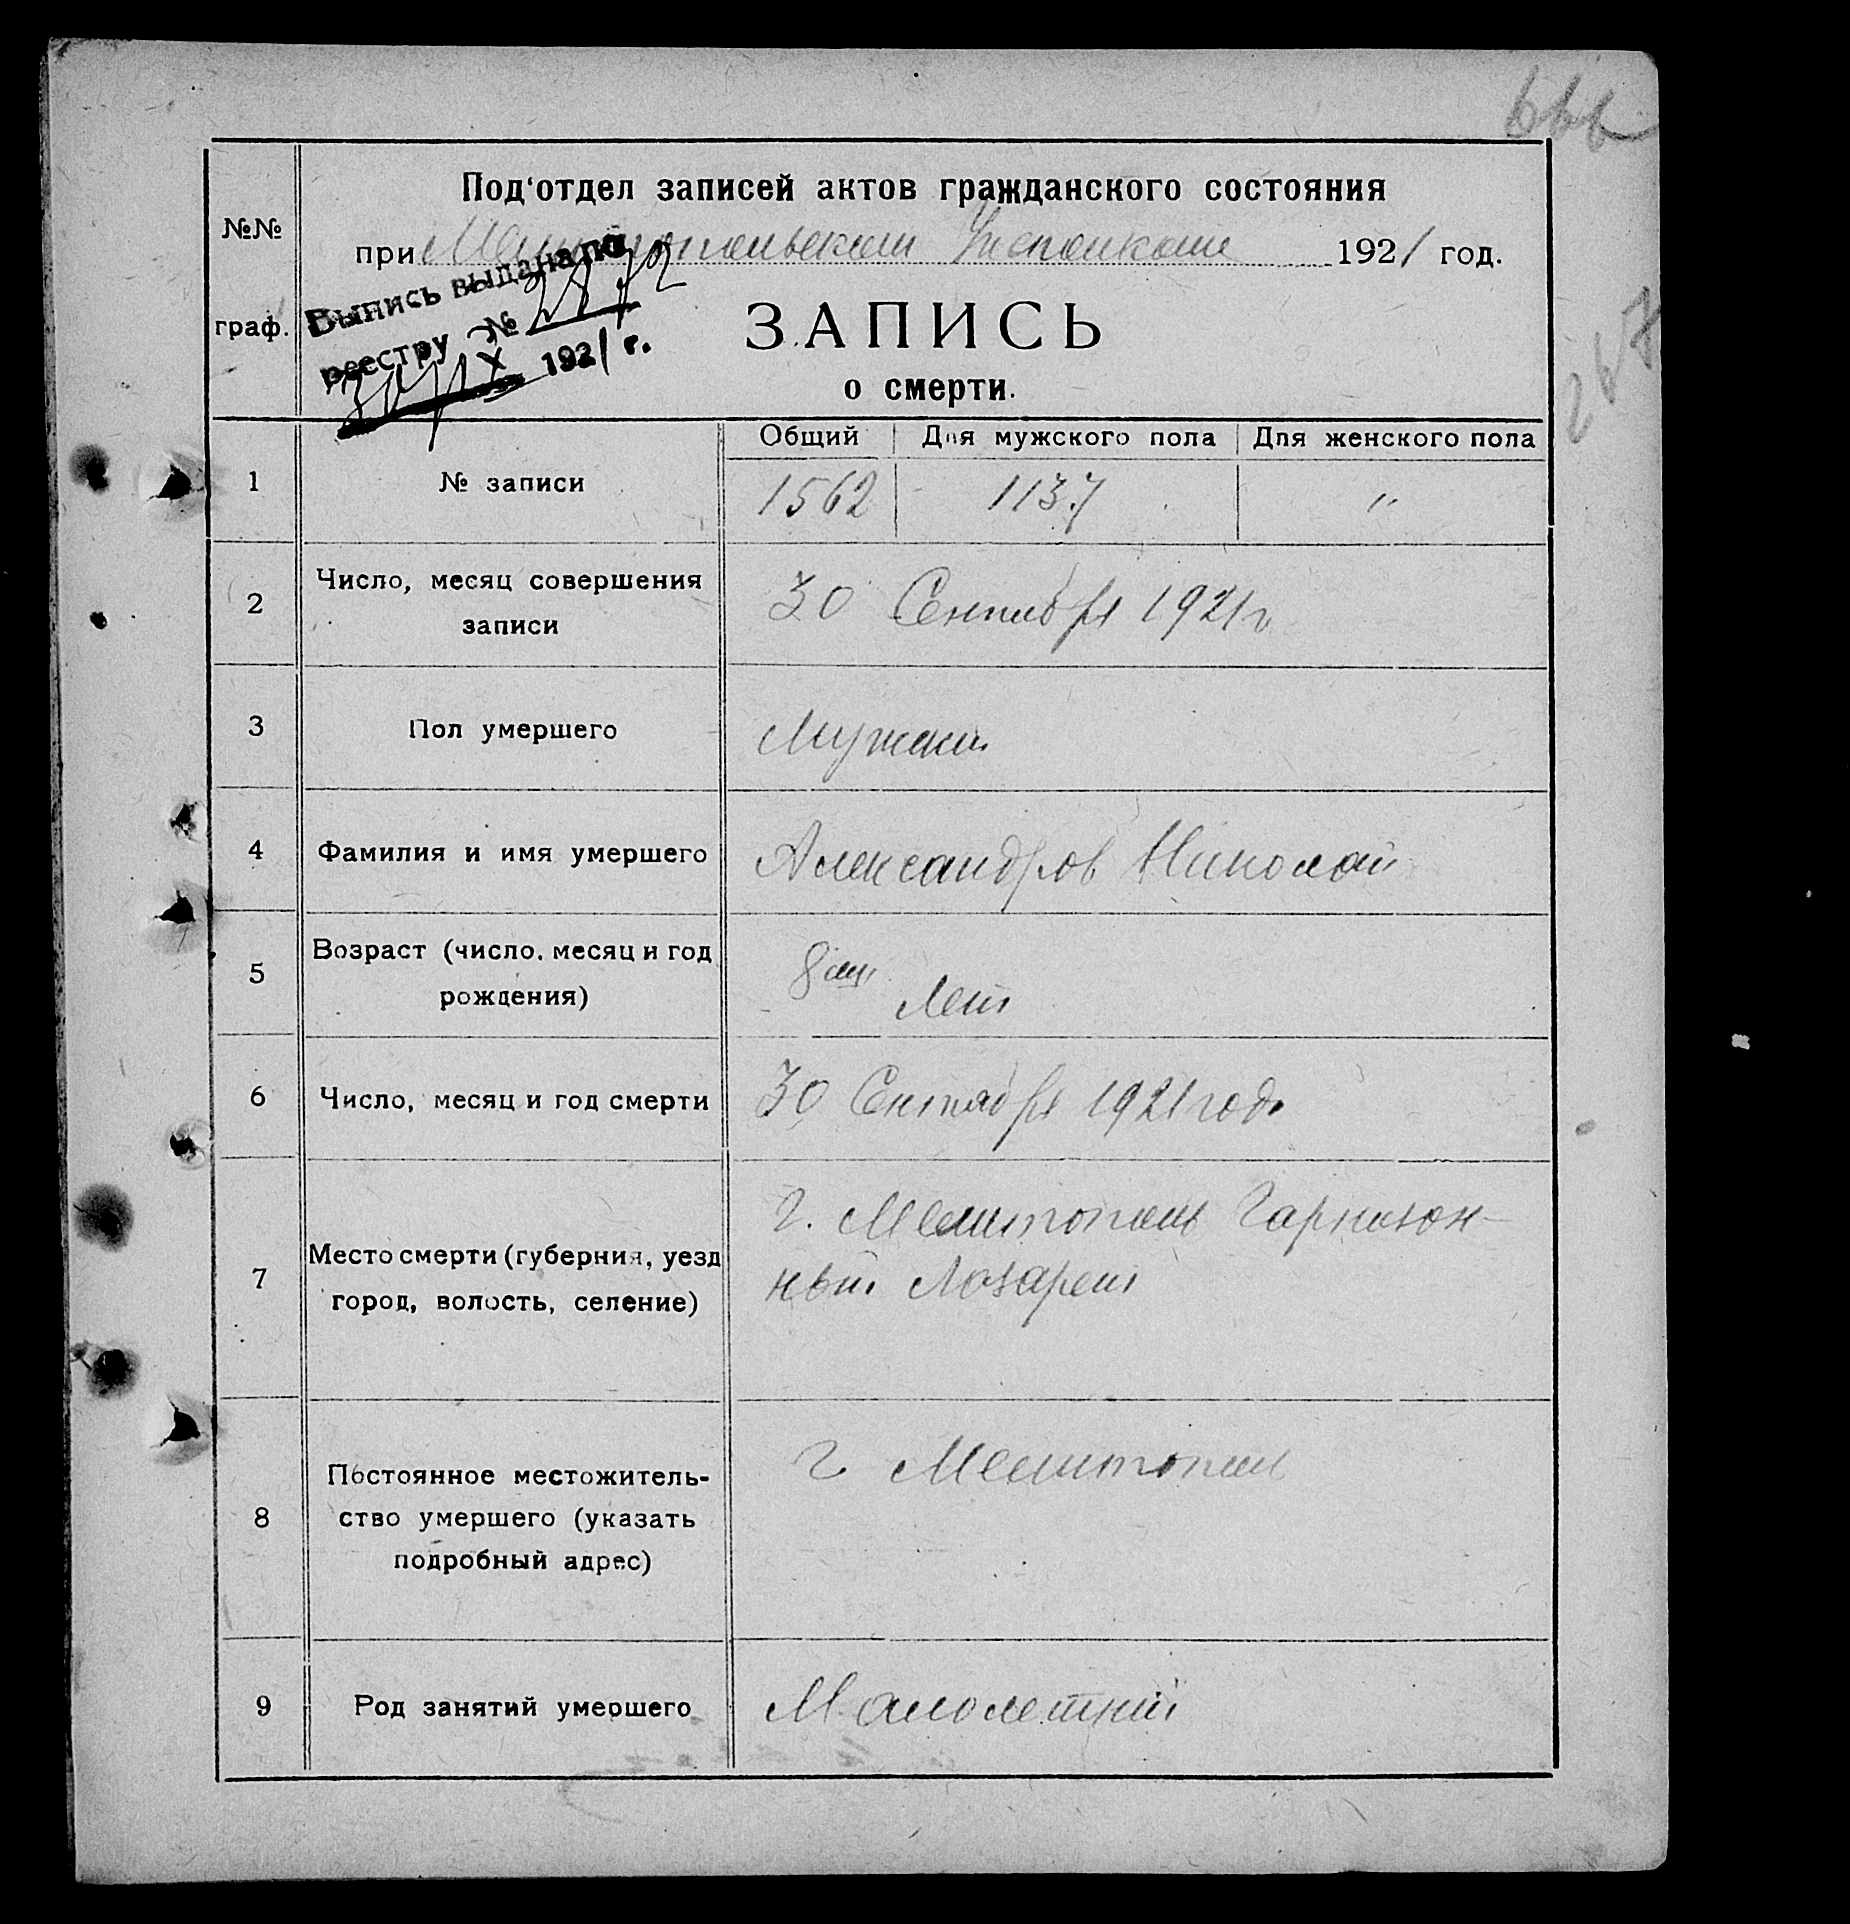 666
Под'отдел записей актов гражданского состояния
№№
при Мелитопольском Уисполкоме 1921 год.
Выпись выдана по
реестру №
X 1921 г.
граф.
ЗАПИСЬ
о смерти.
Общий Для мужского пола Для женского пола
1 № записи 1562 1137 "
2 Число, месяц совершения
записи
30 Сентября 1921 г
3 Пол умершего Мужской
4 Фамилия и имя умершего Александров Николай
5 Возраст (число, месяц и год
рождения)
8ми
Лет
6 Число, месяц и год смерти 30 Сентября 1921 года
7 Место смерти (губерния, уезд
город, волость, селение)
г. Мелитополь Гарнизон-
ный Лазарет
8 Постоянное местожитель-
ство умершего (указать
подробный адрес)
г Мелитополь
9 Род занятий умершего Малолетний